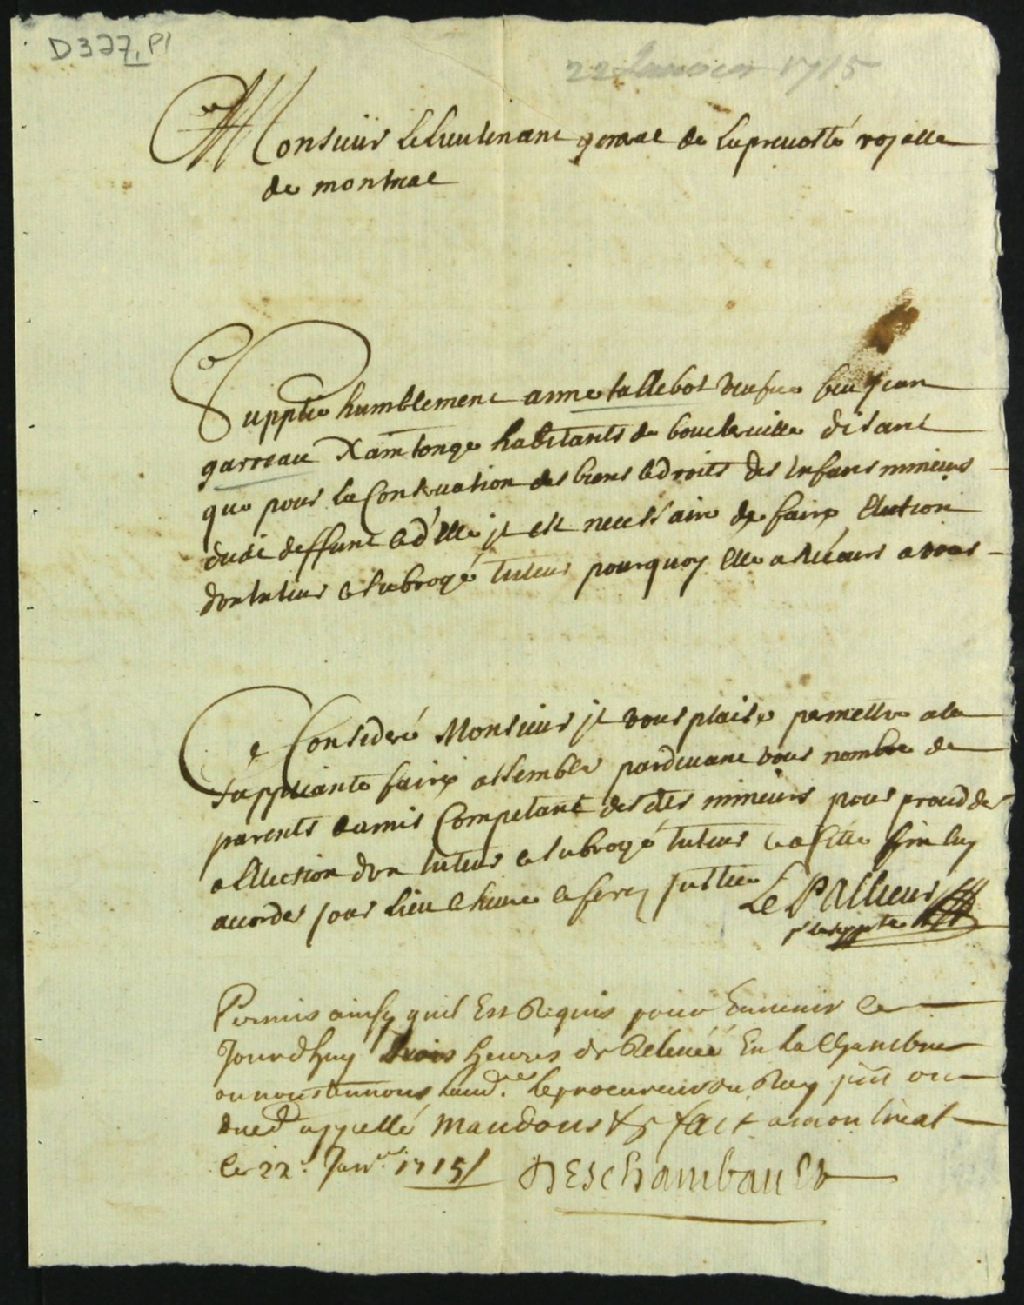 D377, P1
22 Janvier 1715
Monsieur Le Lieutenant general de la prevosté royalle
de montreal
Supplie humblement anne tallebot veufve feu Jean
garreau Xaintonge habitants de boucherville disant
que pour la Conservation des biens & droits des enfans mineurs
dudt deffunt & d'elle jl est necessaire de faire Election
d'un tuteur & subrogé tuteur pourquoy elle a recours a vous
Ce Consideré Monsieur jl vous plaise permettre a la
suppliante faire assembler pardevant vous nombre de
parents & amis Competant desdts mineurs pour proceder
a l'Election d'un tuteur & subrogé tuteur & a cette fin luy
accorder jour lieu & heure & ferez justice Le Pallieur
pr la suppte
Permis ainsy quil Est Requis pour Enuenir Ce
Jourdhuy trois heures de Relevéé En la Chambre
ou nous tennons Laudce Le procureur du Roy jnt ou
dued appellé Mandons &c fait a montreal
le 22e Janer 1715 / DesChambault